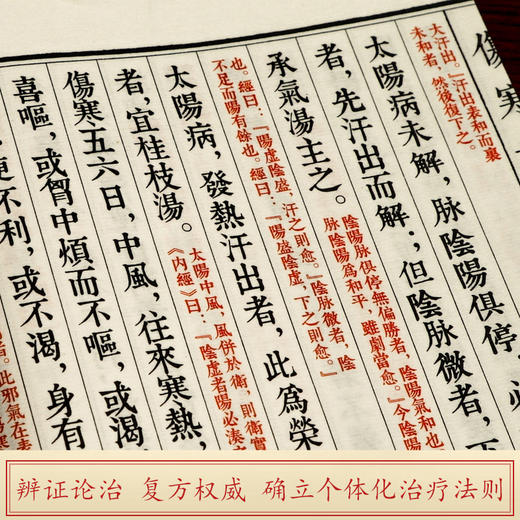 傷寒
大汗出。』汗出表和而裏
未和者，然後復下之。
太陽病未解，脉陰陽俱停，必
者，先汗出而解；但陰脉微者，下
承氣湯主之。
陰陽脉俱停無偏勝者，陰陽氣和也
脉陰陽爲和平，雖劇當愈。』今陰陽
也。經曰：『陽虛陰盛，汗之則愈。』陰脉微者，陰
不足而陽有餘也。經曰：『陽盛陰虛，下之則愈。』
太陽病，發熱汗出者，此爲榮
者，宜桂枝湯。
太陽中風，風併於衛，則衛實
《内經》曰：『陰虛者陽必湊之
傷寒五六日，中風，往來寒熱，
喜嘔，或胷中煩而不嘔，或渴
不利，或不渴，身有
者。此邪氣在表
辨证论治 复方权威 确立个体化治疗法则